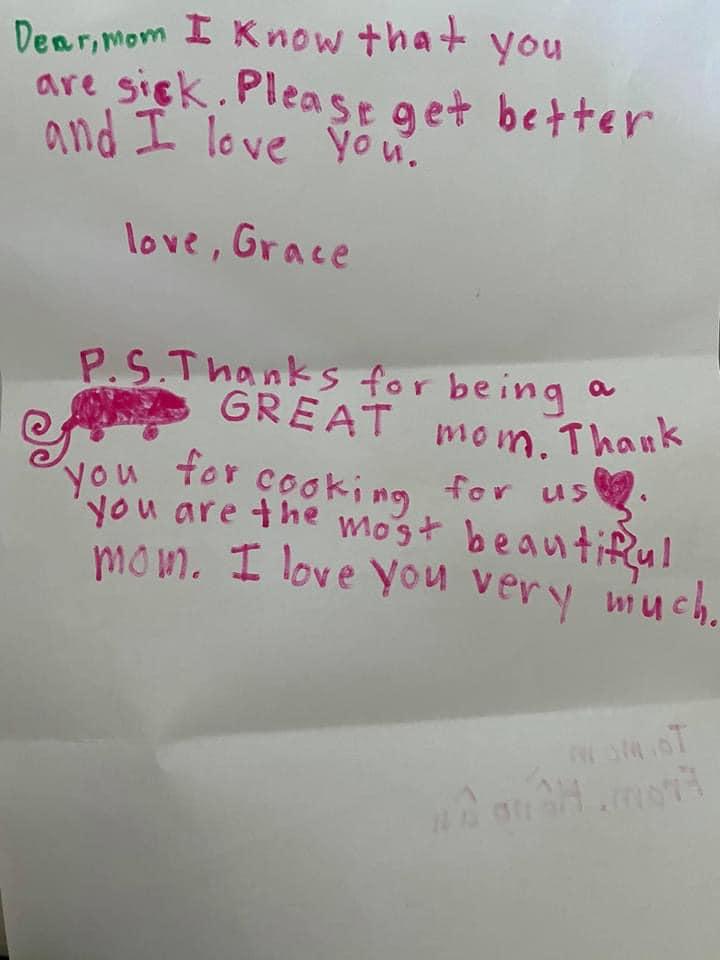 Dear, mom I Know that you
are sick. Please get better
and I love you.
love, Grace
P.S. Thanks for being a
GREAT mom. Thank
you for cooking for us.
you are the most beautiful
mom. I love you very much.
To, mom
From, Hồng Ân